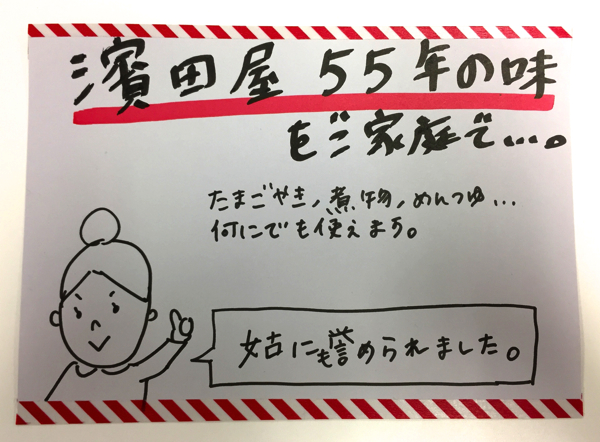 濱田屋 55年の味
をご家庭で…。
たまごやき、煮物、めんつゆ…
何にでも使えます。
姑にも誉められました。